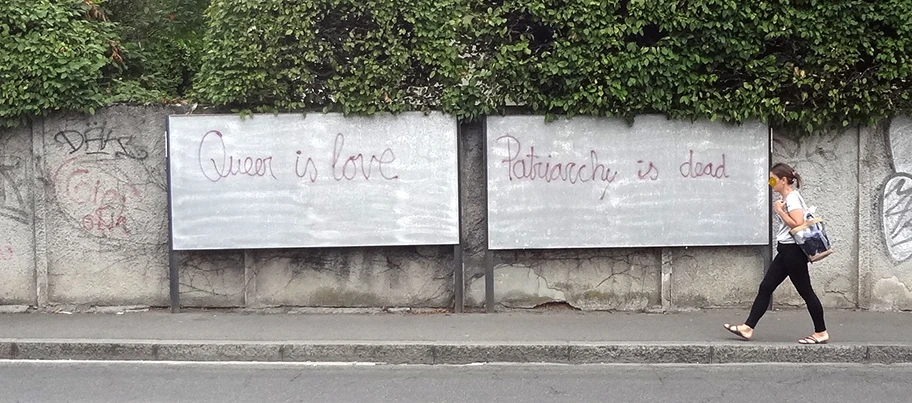 Queer is love
Patriarchy is dead